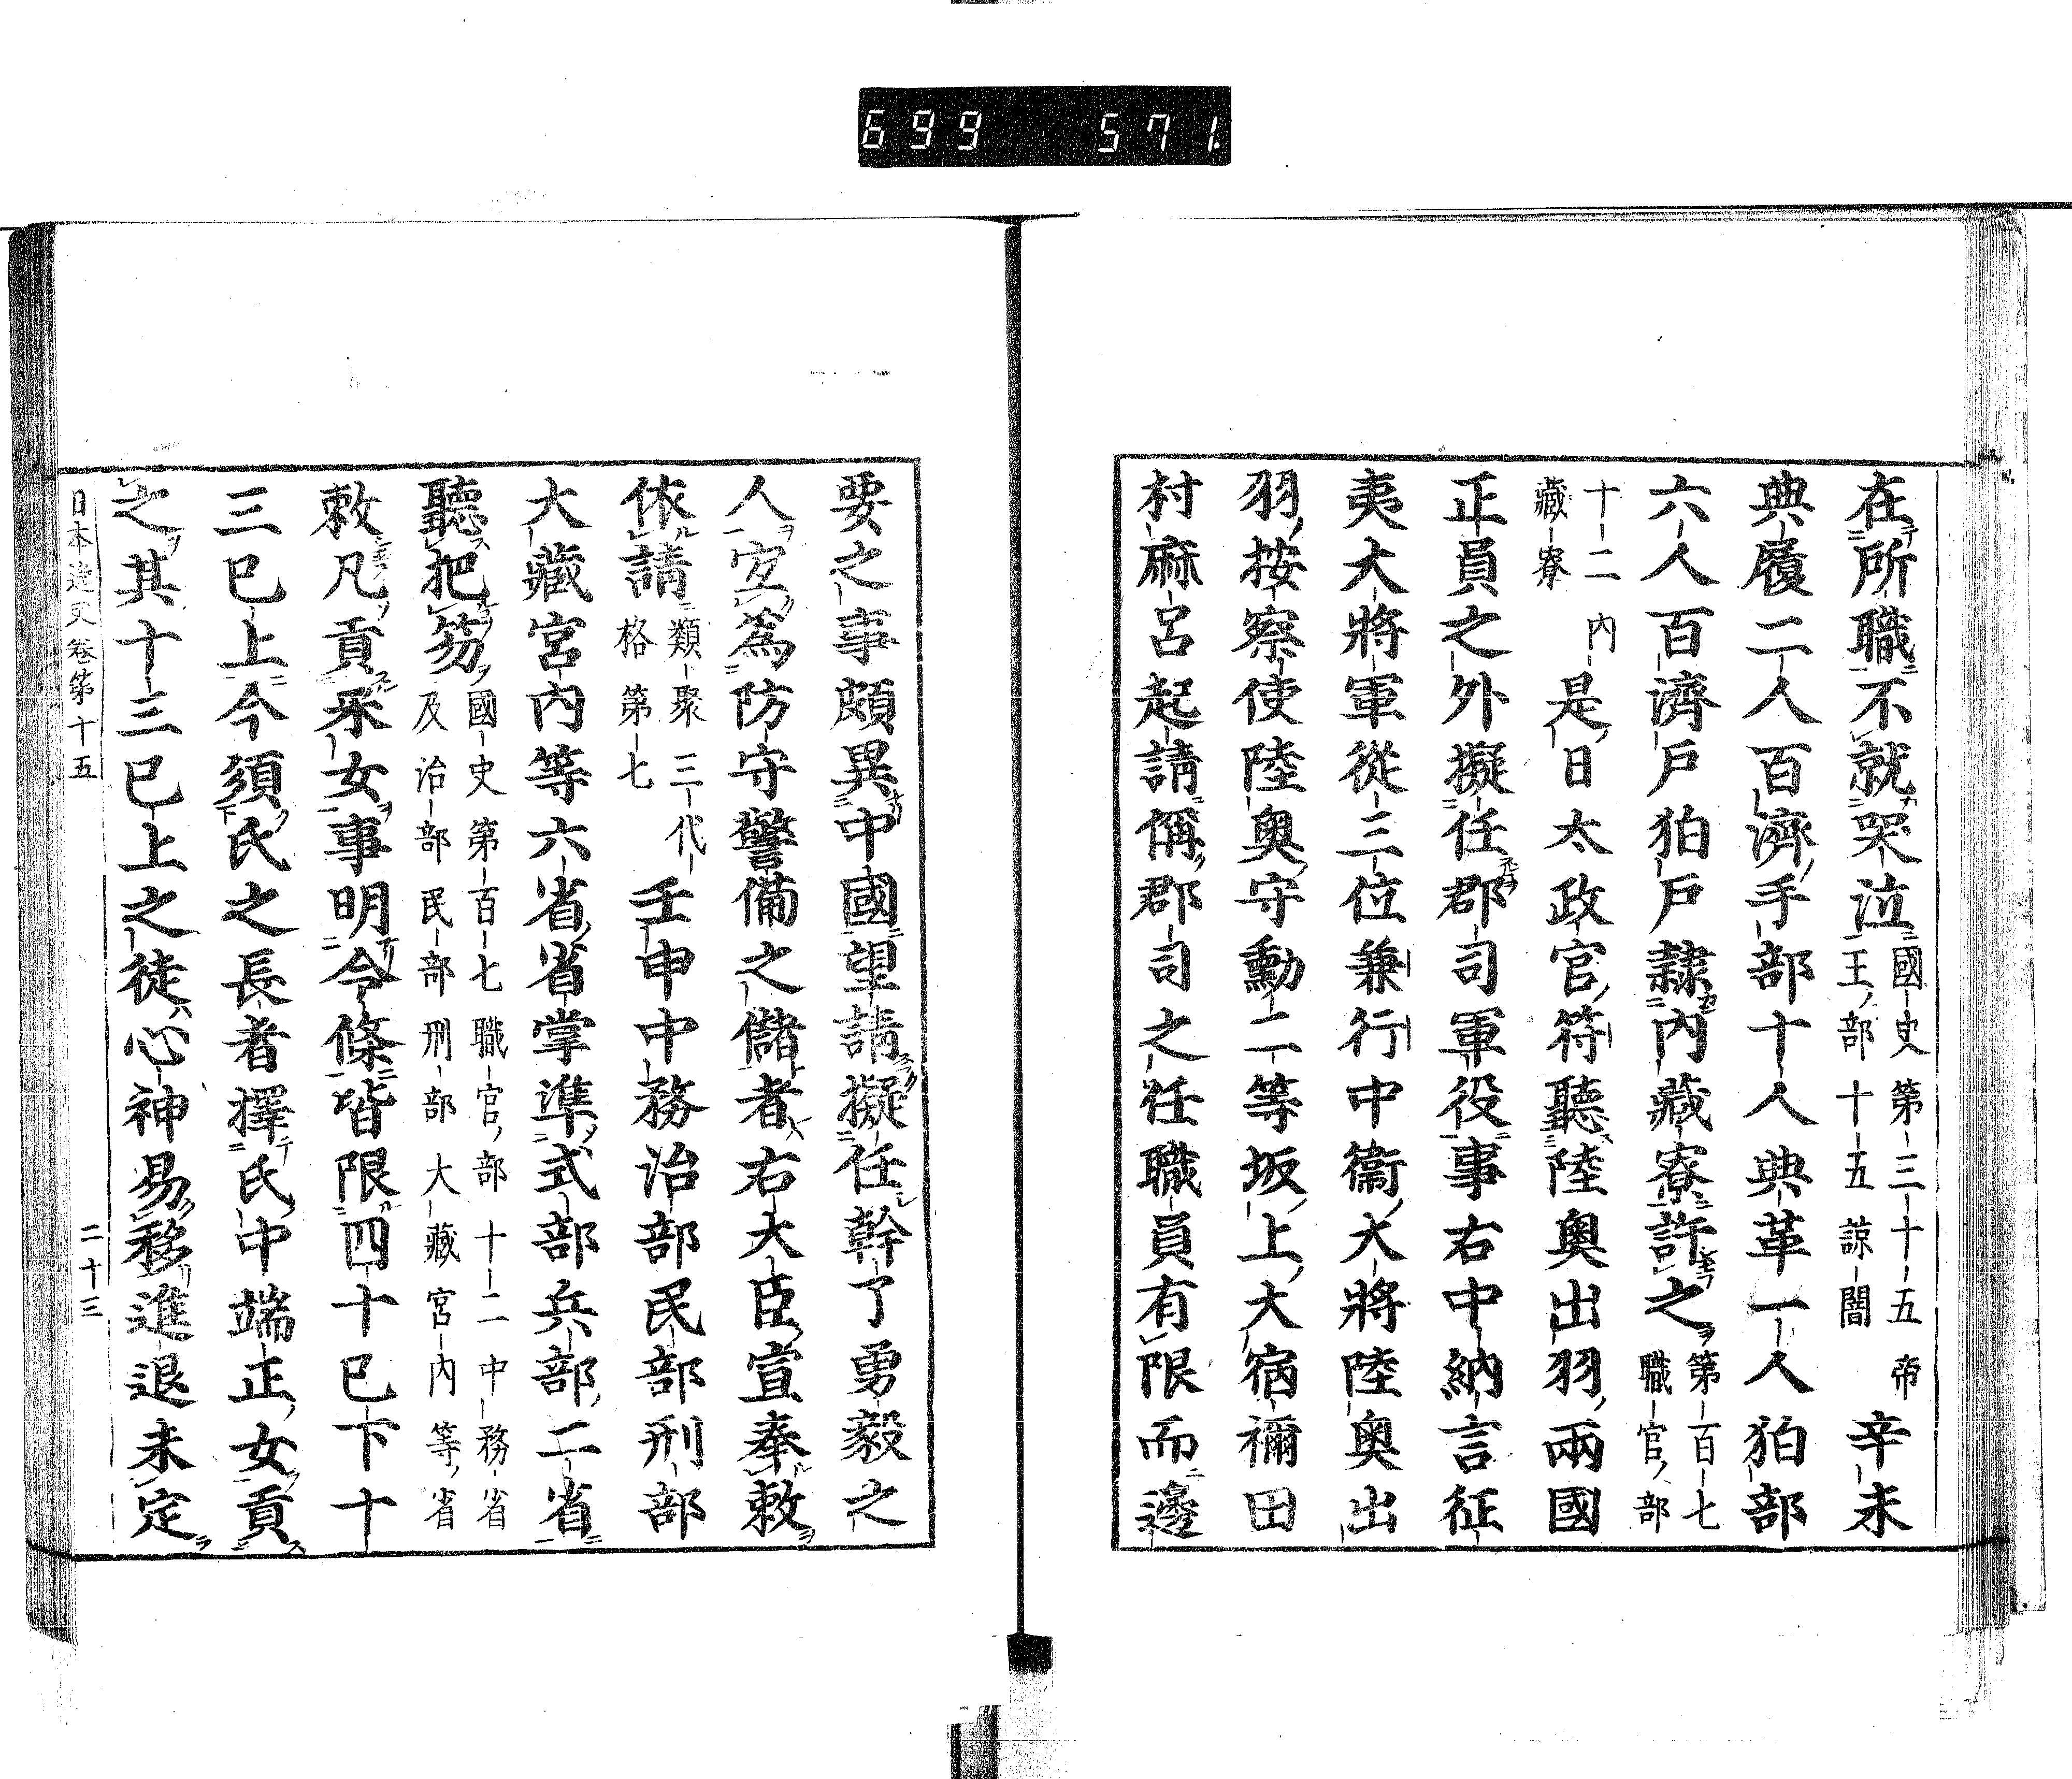 699 571
在所職不就哭泣國史第三十五帝王部十五諒闇辛未
典履二人百濟手部十人典革一人狛部
六人百濟戶狛戶隷內藏寮許之第百七職官部
十二內藏寮是日太政官符聽陸奧出羽兩國
正員之外擬任郡司軍役事右中納言征
夷大將軍從三位兼行中衞大將陸奧出
羽按察使陸奧守勳二等坂上大宿禰田
村麻呂起請偁郡司之任職員有限而邊
要之事頗異中國望請擬任幹了勇毅之
人宐爲防守警備之儲者右大臣宣奉敕
依請類聚三代格第七壬申中務治部民部刑部
大藏宮內等六省省掌準式部兵部二省
聽把笏國史第百七職官部十二中務省及治部民部刑部大藏宮內等省
敕凡貢采女事明令條皆限四十已下十
三已上今須氏之長者擇氏中端正女貢
之其十三已上之徒心神易移進退未定
日本逸史卷第十五 二十三